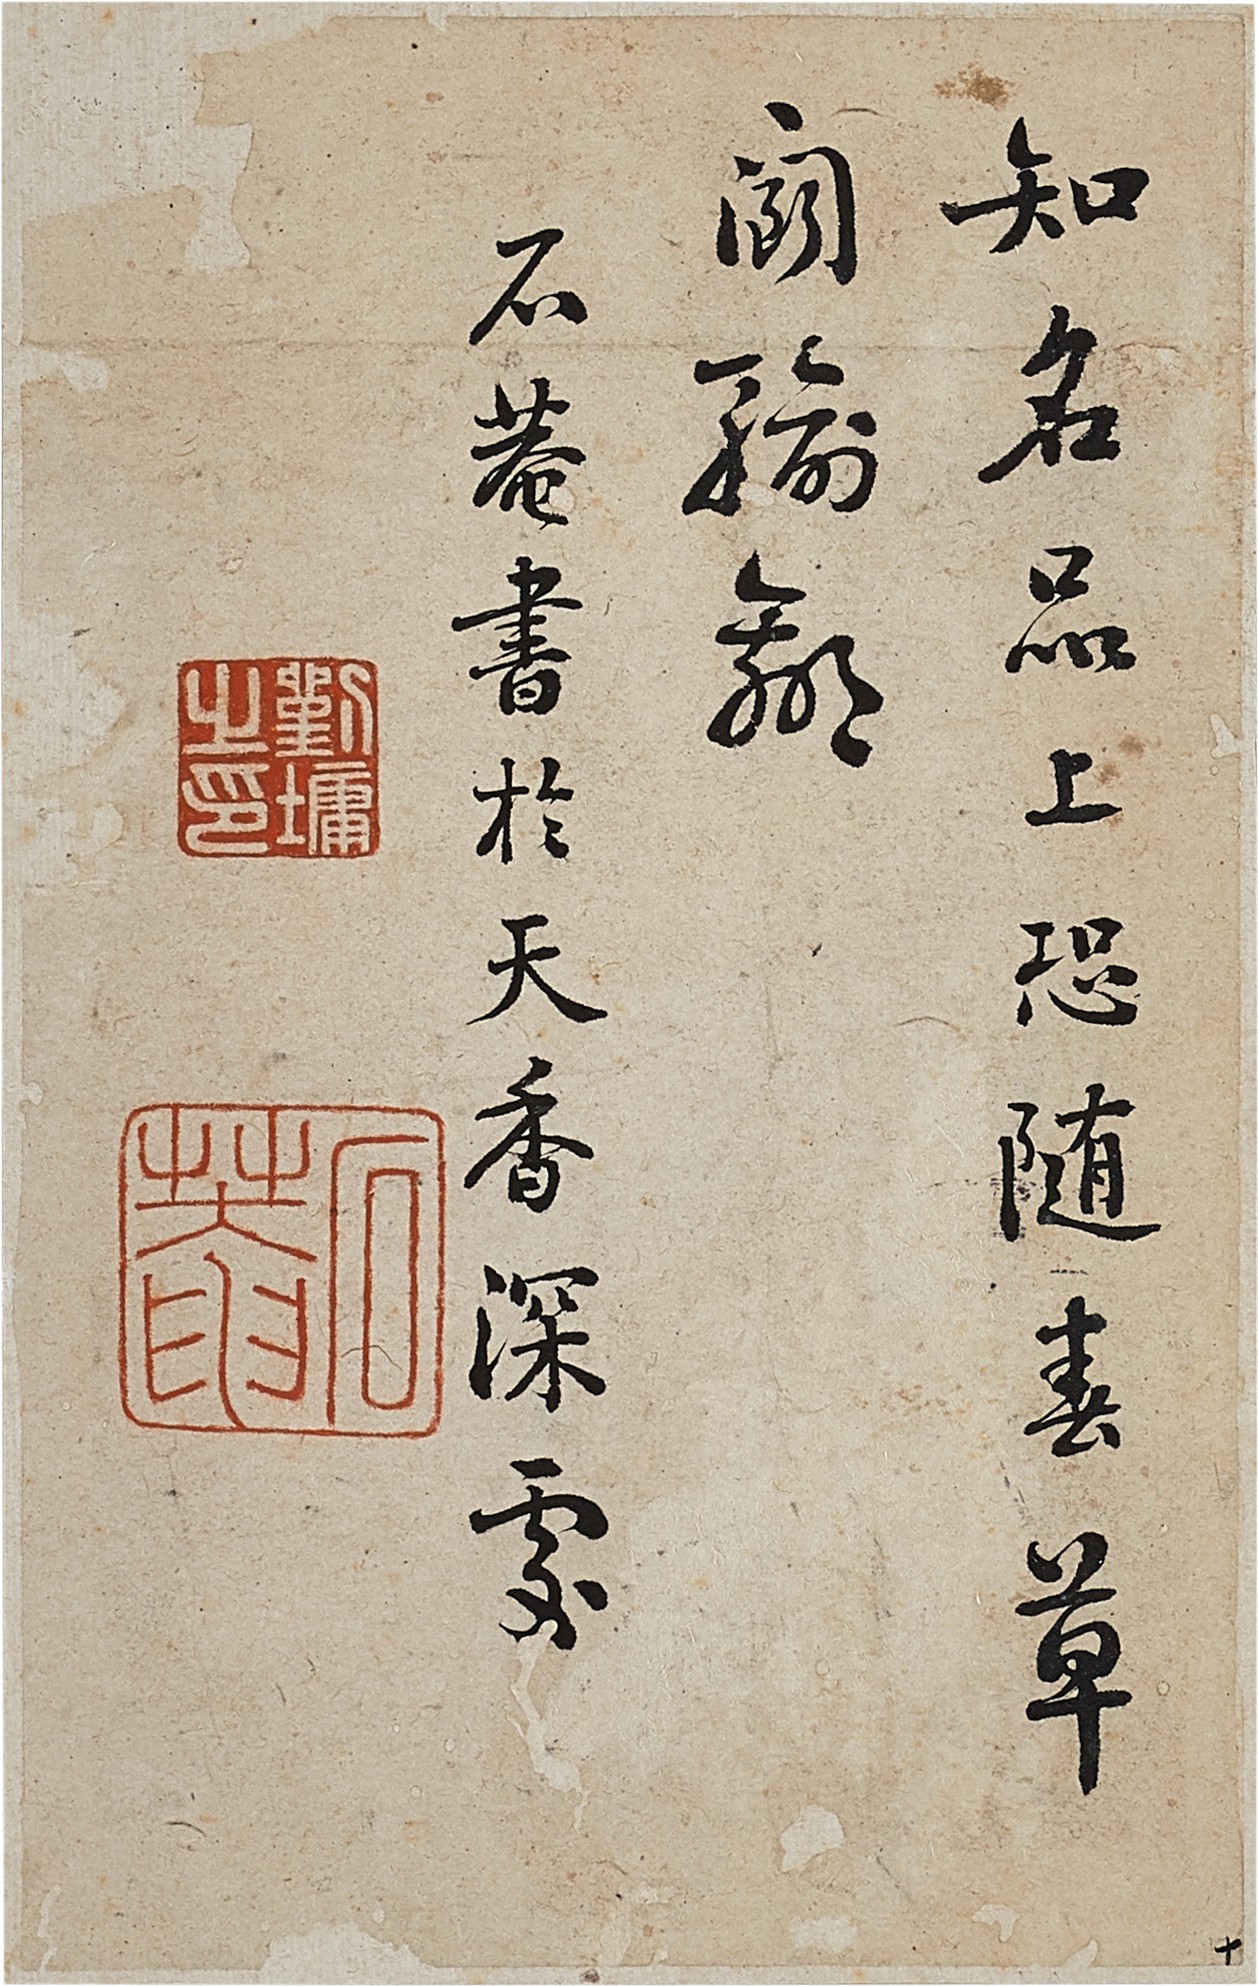 知名品上恐随春草
鬭輸贏
石菴書於天香深處
劉墉之印
石菴
十